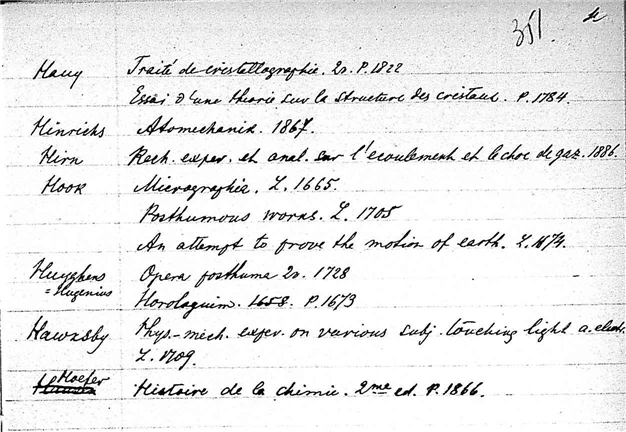 351.
Hauy Traité de cristallographie. 2v. P. 1822
Essai d'une theorie sur la structure des cristaux. P. 1784.
Hinrichs Atomechanik. 1867.
Hirn Rech. exper. et anal. sur l'ecoulement et le choc de gaz. 1886.
Hook Micrographia. L. 1665.
Posthumous works. L. 1705
An attempt to prove the motion of earth. L. 1674.
Huyghens Opera posthuma 2v. 1728
= Hugenius Horologuim. 1658. P. 1673
Hawksby Phys.-mech. exper. on various subj. touching light a. electr.
L. 1709.
Hoefer Histoire de la chimie. 2me ed. P. 1866.